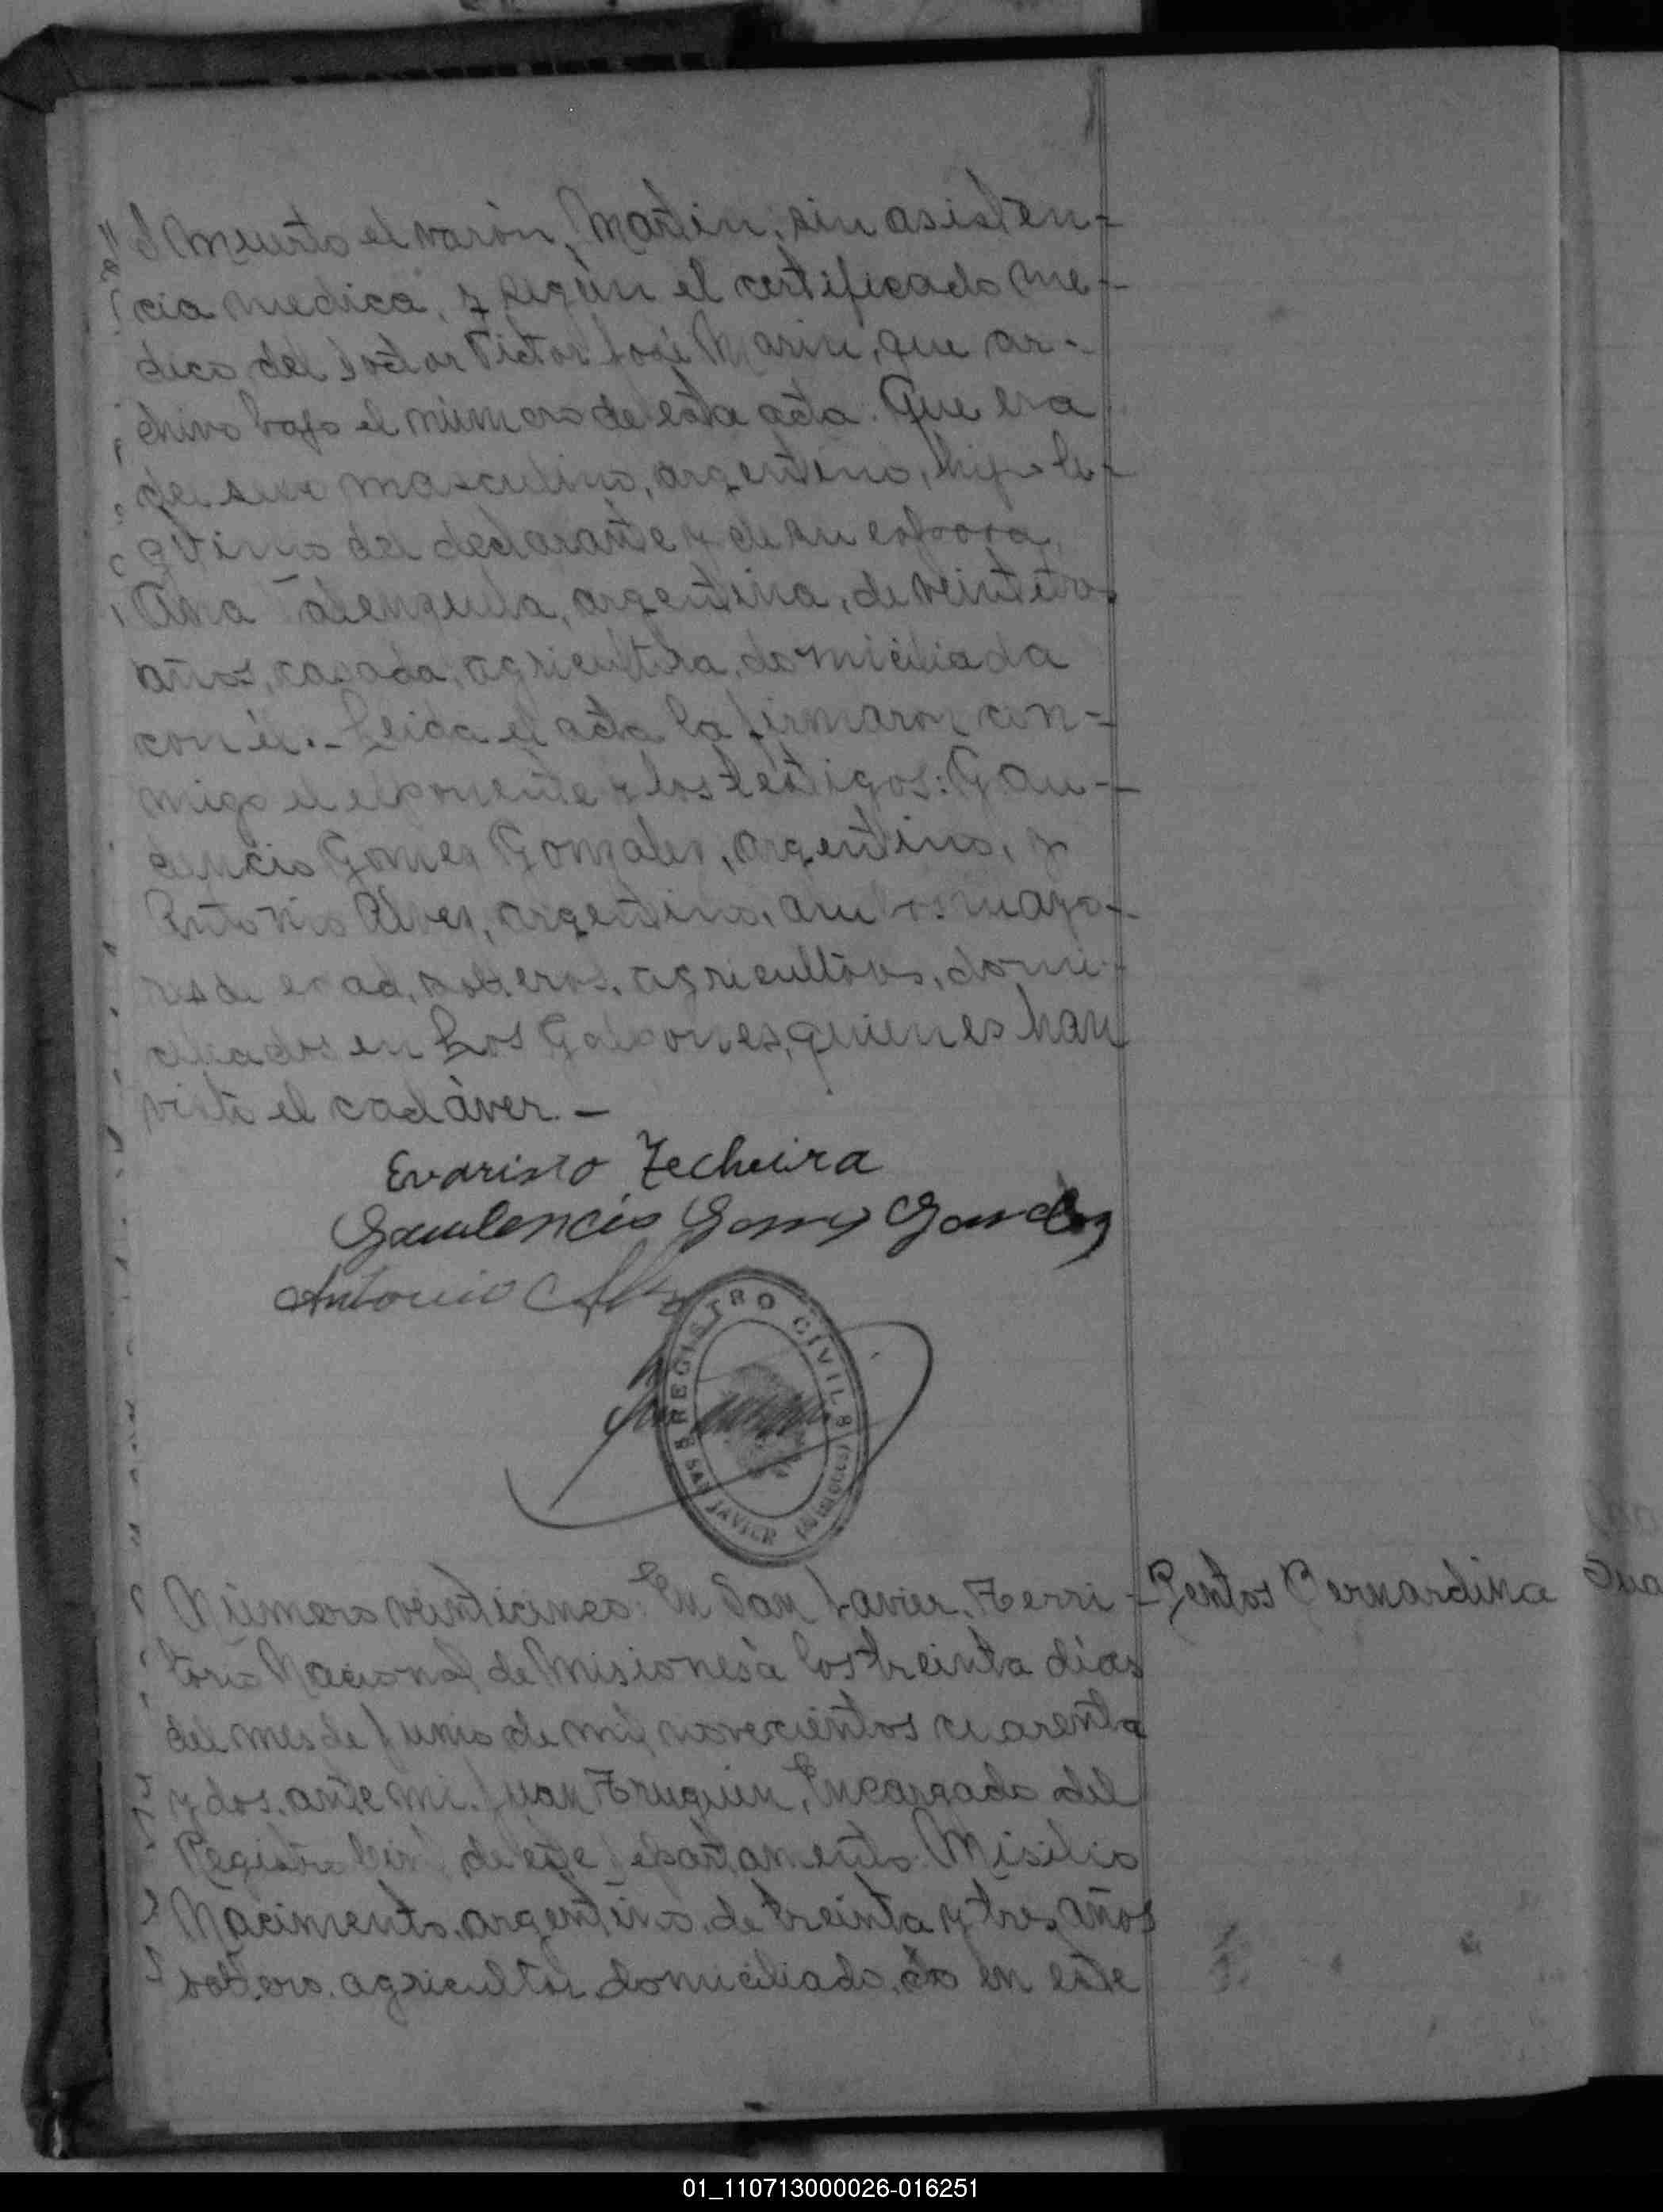 Muerto el varón, Martin, sin asisten-
cia medica, y según el certificado me-
dico del doctor Victor José Marin, que ar-
chivo bajo el número de esta acta. Que era
del sexo masculino, argentino, hijo le-
gitimo del declarante y de su esposa,
Ana argentina, de veintetres
años, casada, domiciliada
con él.- Leida el acta la firmaron con-
migo el exponente y los testigos: Gau-
dencio Gomez Gonzalez, argentino, y
Antonio Alvez, argentino, ambos mayo-
res de edad, solteros, agricultores, domi-
ciliados en Los Galpones, quienes han
visto el cadáver.-
Evaristo Techeira
Gaudencio Gomez Gonzalez
Antonio Alvez
REGISTRO CIVIL
SAN JAVIER (MISIONES)
Número veinticinco: En San Javier, Terri-
torio Nacional de Misiones à los treinta días
del mes de Junio de mil novecientos cuarenta
y dos, ante mi, Juan Encargado del
Registro Civil de este Departamento
Nacimento, argentino, de treinta y tres años
soltero, agricultor, domiciliado en este
Bernardina
01_110713000026-016251